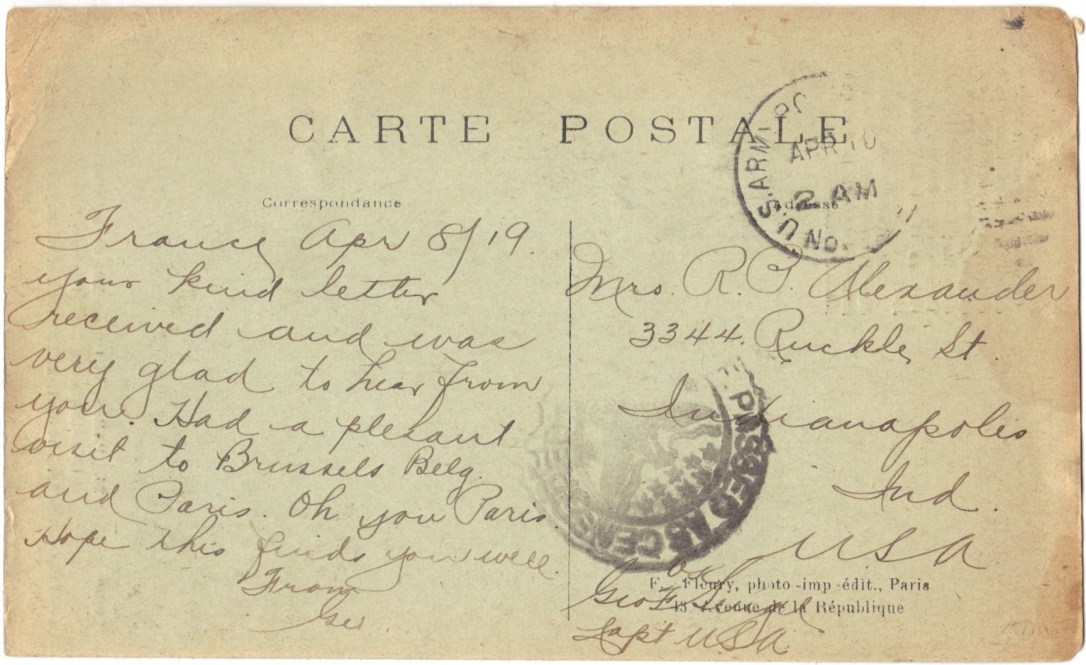 CARTE POSTALE
U.S. ARMY PO
APR 10
2 AM
NO.
Correspondance
Adresse
France Apr 8/19.
your kind letter
received and was
very glad to hear from
you. Had a plesant
visit to Brussels Belg.
and Paris. Oh you Paris.
Hope this finds you well.
From
Geo.
Mrs. R. P. Alexander
3344. Ruckle St
Indianapolis
Ind.
USA
PASSED AS CENSORED
OK
Geo F.
Capt USA
F. Fleury, photo-imp-édit., Paris
13 Avenue de la République